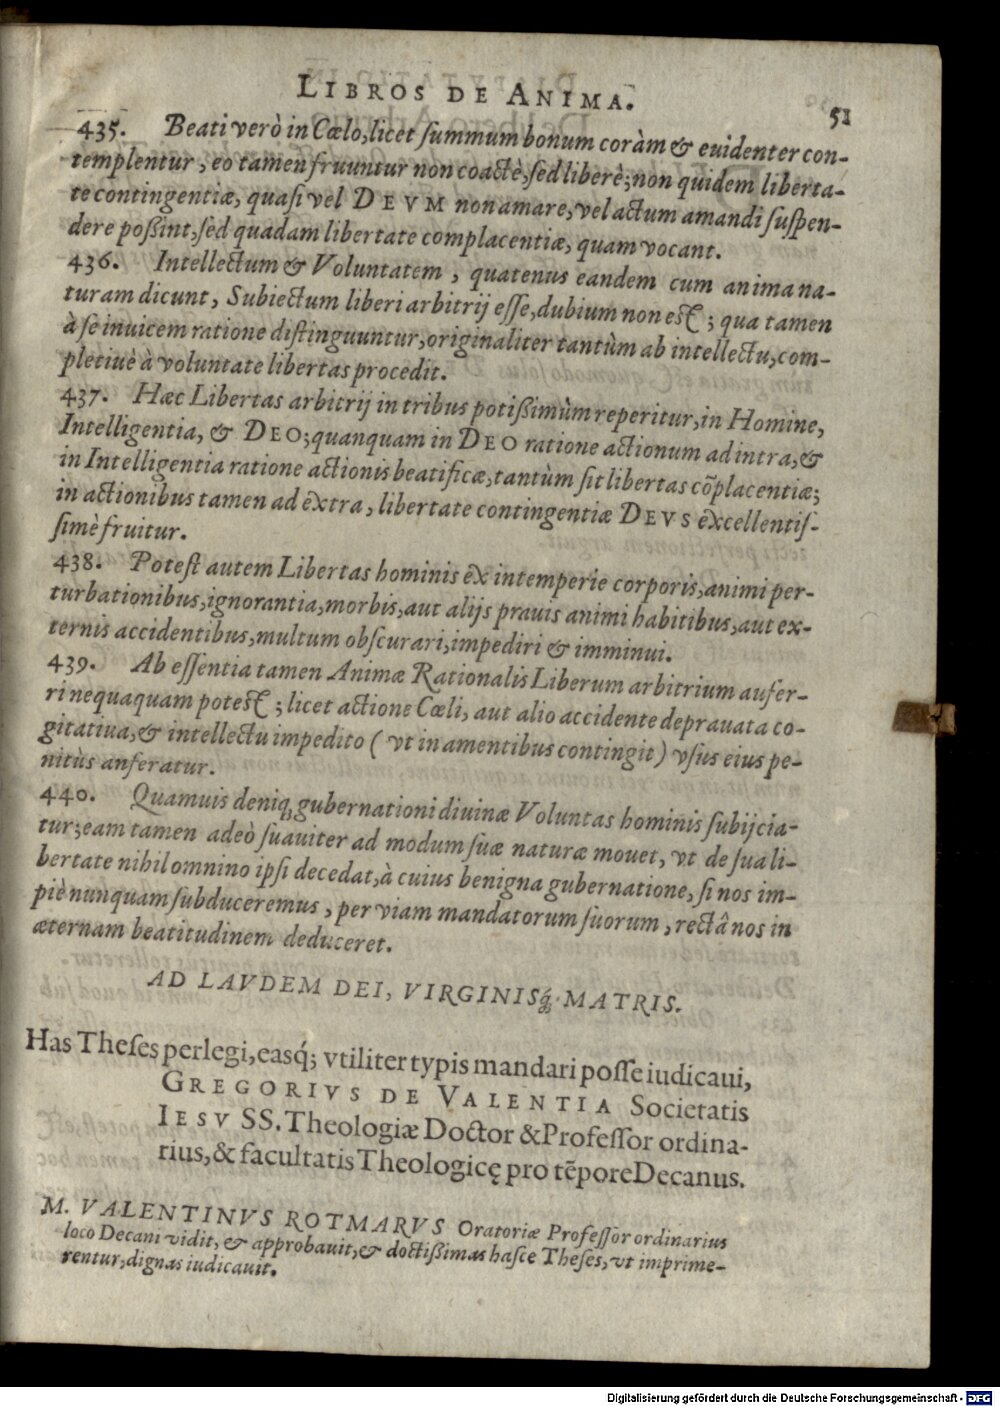 LIBROS DE ANIMA. 51
435. Beati verò in Cœlo, licet ſummum bonum coràm & euidenter con-
templentur, eo tamen fruuntur non coactè, ſed liberè; non quidem liberta-
te contingentiæ, quaſi vel DEVM non amare, vel actum amandi ſuſpen-
dere poßint, ſed quadam libertate complacentiæ, quam vocant.
436. Intellectum & Voluntatem, quatenus eandem cum anima na-
turam dicunt, Subiectum liberi arbitrij eſſe, dubium non eſt; qua tamen
à ſe inuicem ratione diſtinguuntur, originaliter tantùm ab intellectu, com-
pletiuè à voluntate libertas procedit.
437. Hæc Libertas arbitrij in tribus potißimùm reperitur, in Homine,
Intelligentia, & DEO; quanquam in DEO ratione actionum ad intra, &
in Intelligentia ratione actionis beatificæ, tantùm ſit libertas cõplacentiæ;
in actionibus tamen ad extra, libertate contingentiæ DEVS excellentiſ-
ſimè fruitur.
438. Poteſt autem Libertas hominis ex intemperie corporis, animi per-
turbationibus, ignorantia, morbis, aut alijs prauis animi habitibus, aut ex-
ternis accidentibus, multum obſcurari, impediri & imminui.
439. Ab eſſentia tamen Animæ Rationalis Liberum arbitrium aufer-
ri nequaquam poteſt; licet actione Cœli, aut alio accidente deprauata co-
gitatiua, & intellectu impedito ( vt in amentibus contingit ) vſus eius pe-
nitùs anferatur.
440. Quamuis deniq; gubernationi diuinæ Voluntas hominis ſubijcia-
tur; eam tamen adeò ſuauiter ad modum ſuæ naturæ mouet, vt de ſua li-
bertate nihil omnino ipſi decedat, à cuius benigna gubernatione, ſi nos im-
piè nunquam ſubduceremus, per viam mandatorum ſuorum, rectâ nos in
æternam beatitudinem deduceret.
AD LAVDEM DEI, VIRGINISq́; MATRIS.
Has Theſes perlegi, easq́; vtiliter typis mandari poſſe iudicaui,
GREGORIVS DE VALENTIA Societatis
IESV SS. Theologiæ Doctor & Profeſſor ordina-
rius, & facultatis Theologicę pro tẽpore Decanus.
M. VALENTINVS ROTMARVS Oratoriæ Profeſſor ordinarius
loco Decani vidit, & approbauit, & doctißimas haſce Theſes, vt imprime-
rentur, dignas iudicauit.
Digitalisierung gefördert durch die Deutsche Forschungsgemeinschaft - DFG